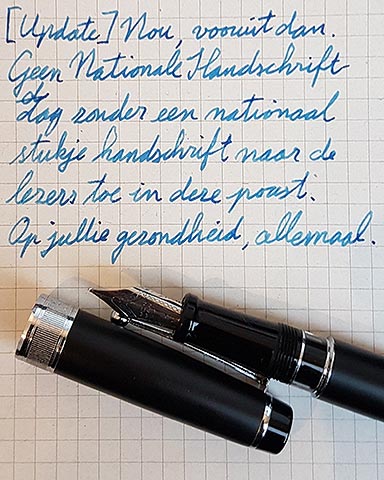 [Update] Nou, vooruit dan.
Geen Nationale Handschrift
dag zonder een nationaal
stukje handschrift naar de
lezers toe in deze poust.
Op jullie gezondheid, allemaal.